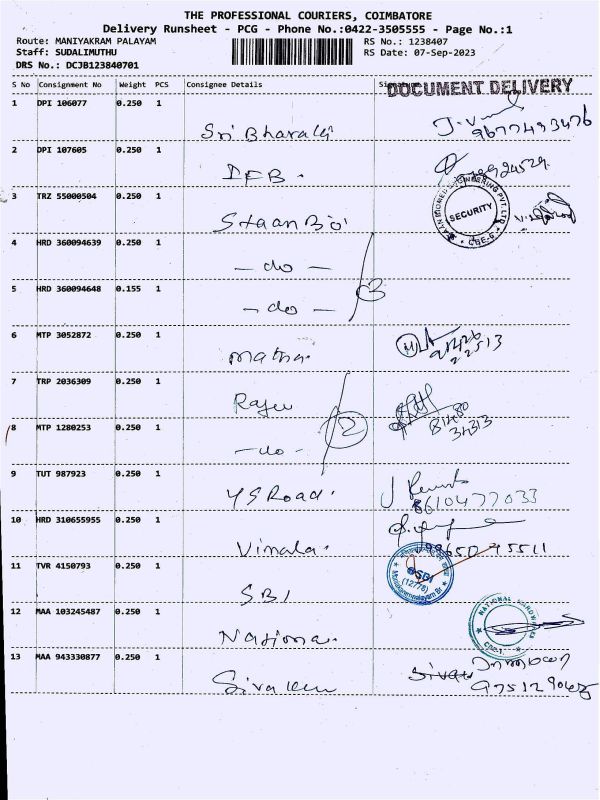 THE PROFESSIONAL COURIERS, COIMBATORE
Delivery Runsheet - PCG - Phone No.:0422-3505555 - Page No.:1
Route: MANIYAKRAM PALAYAM
RS No.: 1238407
Staff: SUDALIMUTHU
RS Date: 07-Sep-2023
DRS No.: DCJB123840701
S No Consignment No Weight PCS Consignee Details
DOCUMENT DELIVERY
1 DPI 106077 0.250 1
Sri Bharathi
9677493476
2 DPI 107605 0.250 1
IFB.
3 TRZ 55000504 0.250 1
SECURITY
CBE-6
4 HRD 360094639 0.250 1
- do -
5 HRD 360094648 0.155 1
- do -
3
6 MTP 3052872 0.250 1
Matha.
22513
7 TRP 2036309 0.250 1
81480
34313
8 MTP 1280253 0.250 1
- do -
2
9 TUT 987923 0.250 1
YS Road.
8610477033
10 HRD 310655955 0.250 1
Vimala.
11 TVR 4150793 0.250 1
SBI
SBI
(12778)
12 MAA 103245487 0.250 1
National
NATIONAL HARDWARES
CBE-1
13 MAA 943330877 0.250 1